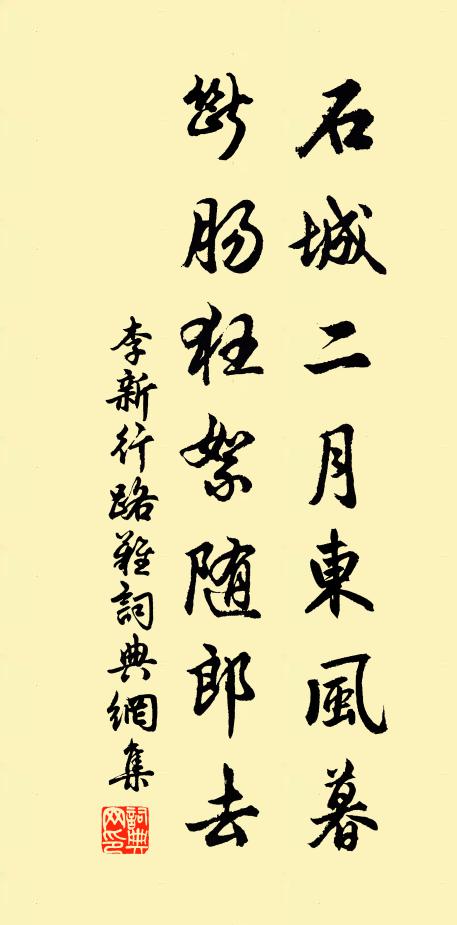 石城二月東風暮
斷腸狂絮随郎去
李新行路難詞典網集
詞典网印